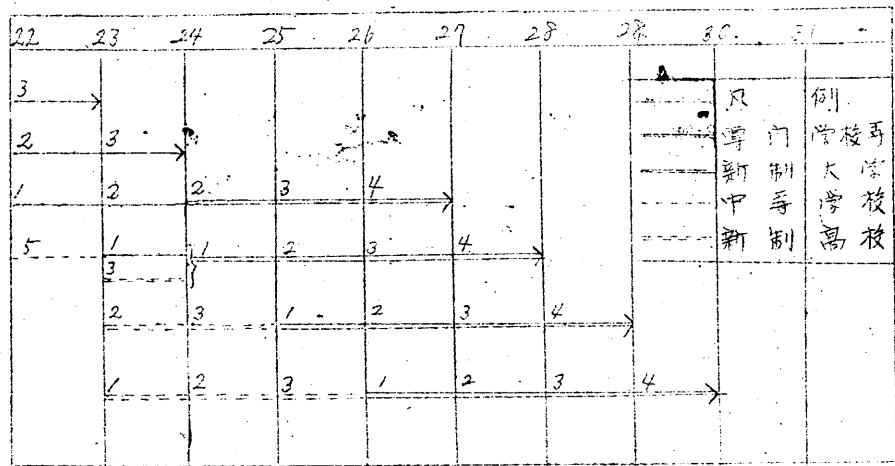 22 23 24 25 26 27 28 28 30 31
3
2 3
1 2 2 3 4
5 1 1 2 3 4
3
2 3 1 2 3 4
1 2 3 1 2 3 4
凡 例
専 门 学校
新 制 大 学
中 等 学 校
新 制 高 校